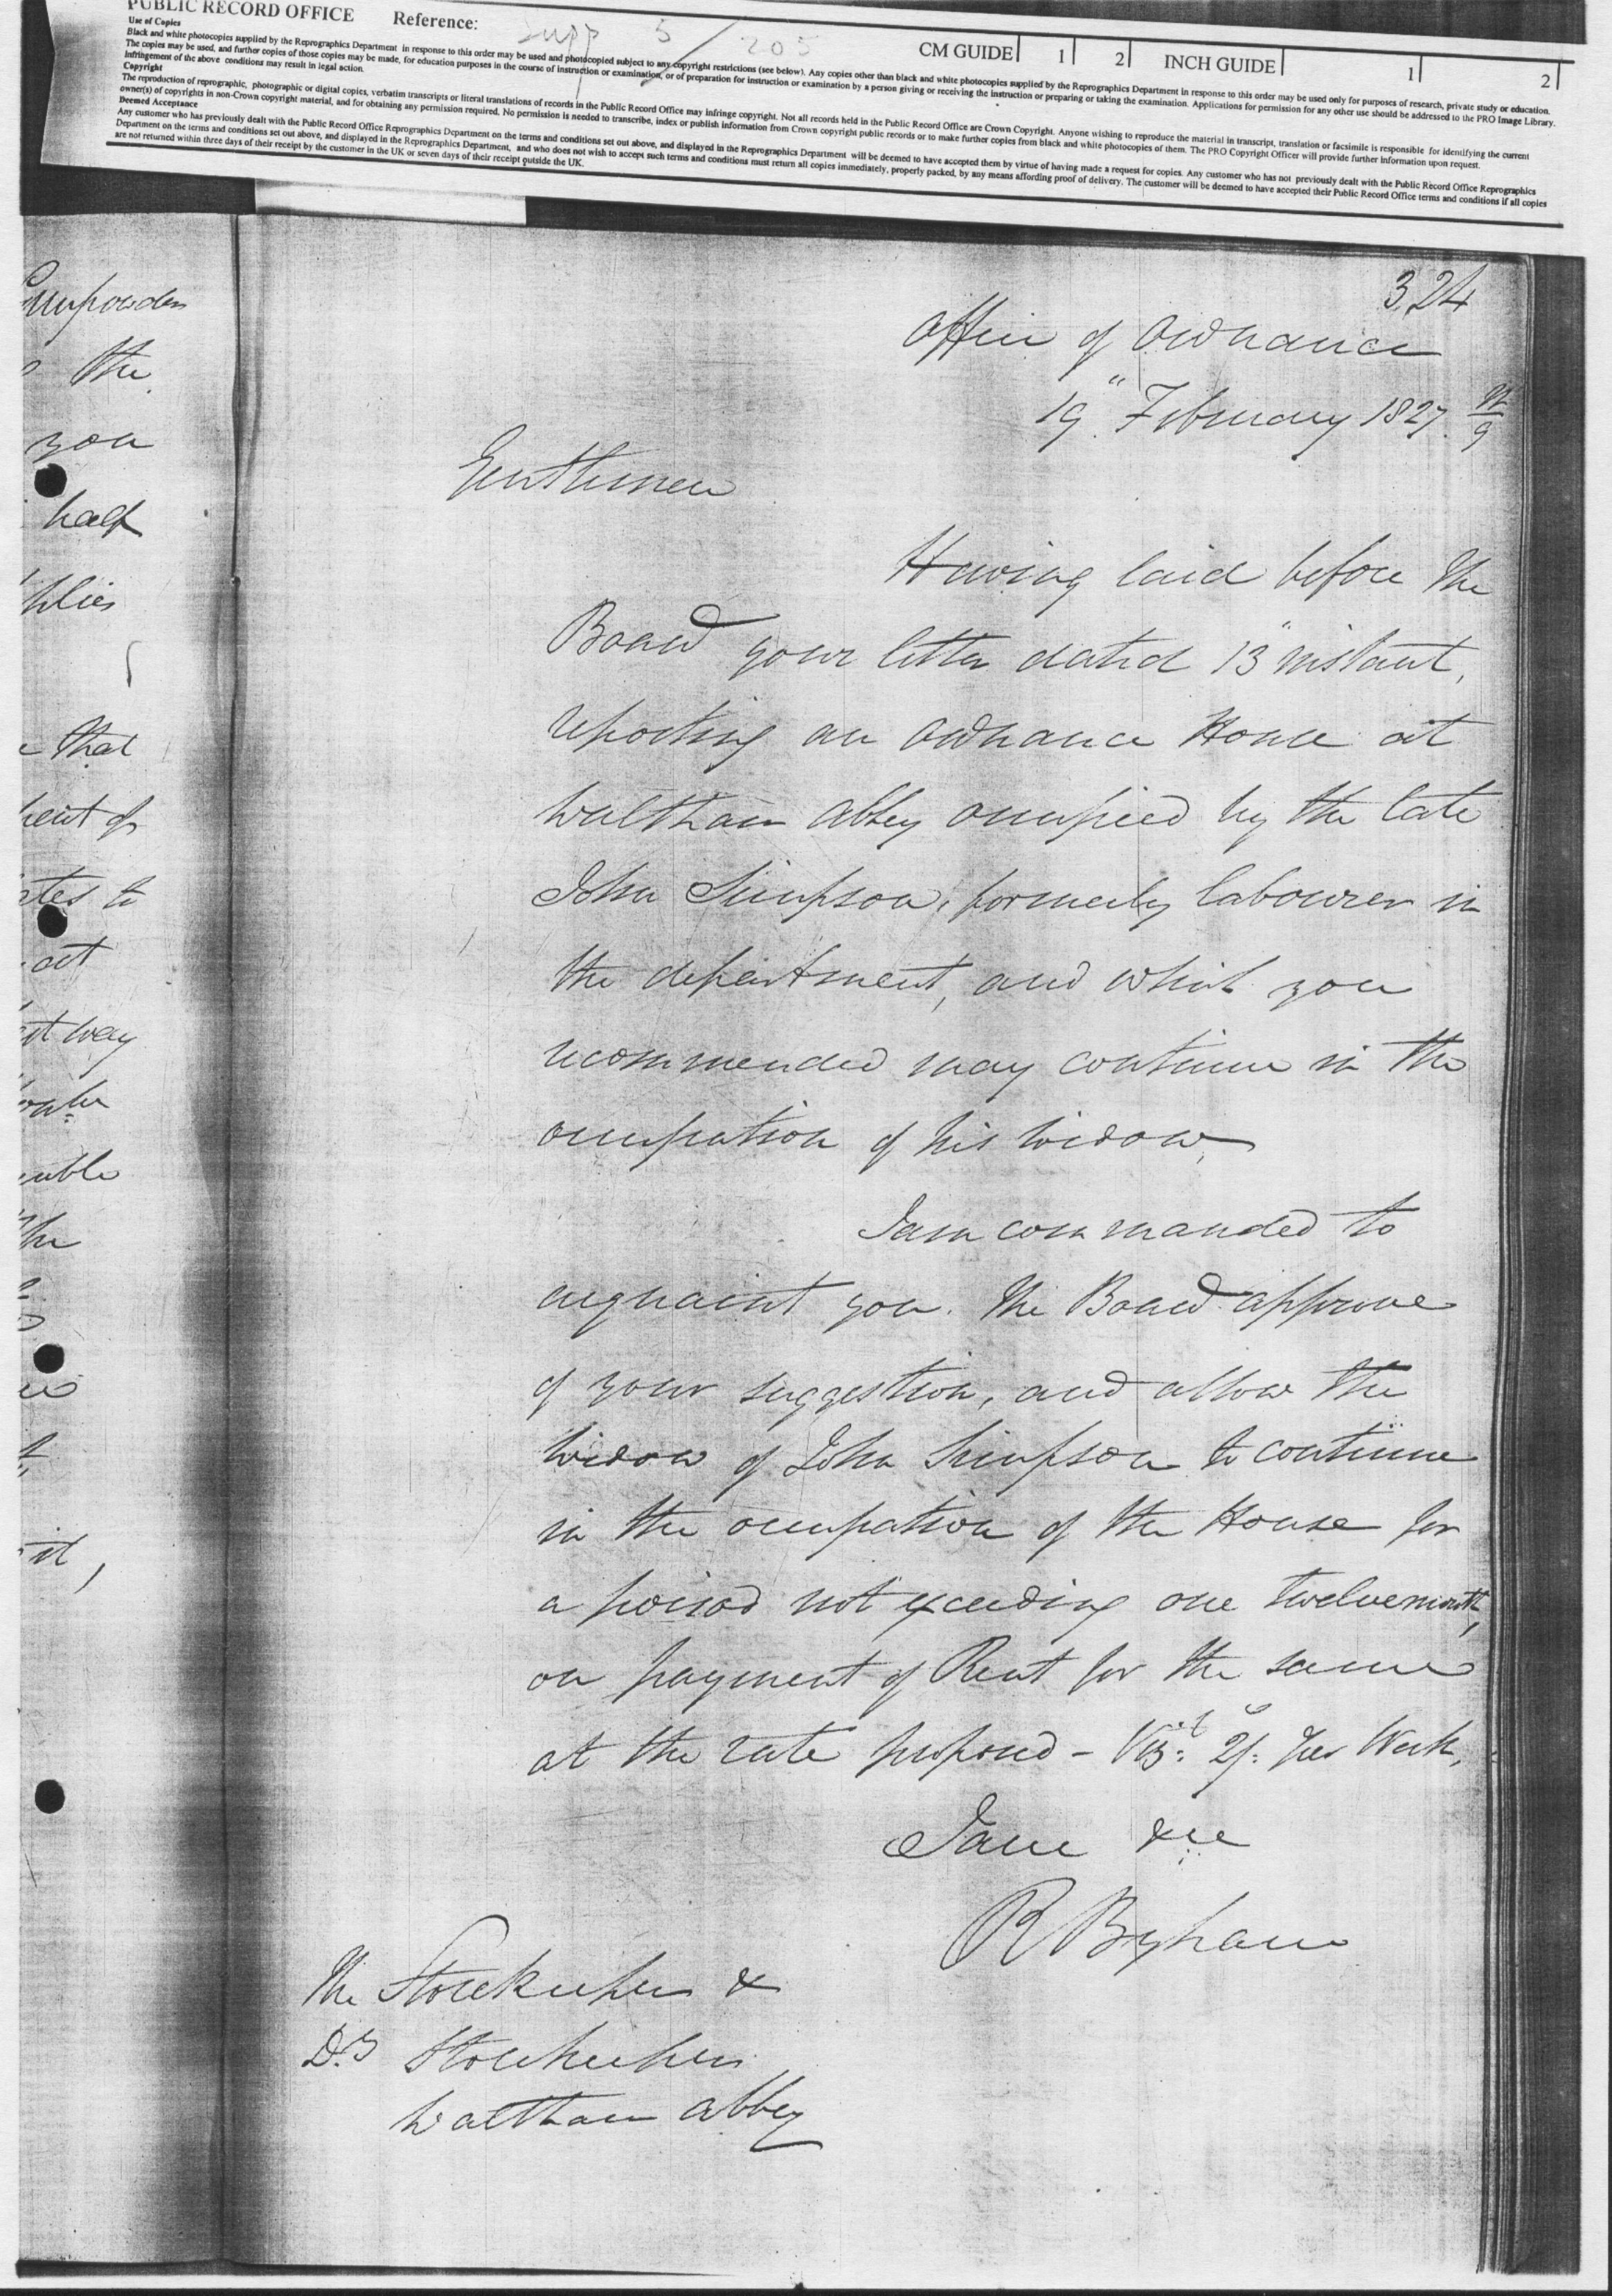 PUBLIC RECORD OFFICE Reference: Supp 5 / 205 CM GUIDE 1 2 INCH GUIDE 1 2
Use of Copies
Black and white photocopies supplied by the Reprographics Department in response to this order may be used and photocopied subject to any copyright restrictions (see below). Any copies other than black and white photocopies supplied by the Reprographics Department in response to this order may be used only for purposes of research, private study or education.
The copies may be used, and further copies of those copies may be made, for education purposes in the course of instruction or examination, or of preparation for instruction or examination by a person giving or receiving the instruction or preparing or taking the examination. Applications for permission for any other use should be addressed to the PRO Image Library.
Infringement of the above conditions may result in legal action.
Copyright
The reproduction of reprographic, photographic or digital copies, verbatim transcripts or literal translations of records in the Public Record Office may infringe copyright. Not all records held in the Public Record Office are Crown Copyright. Anyone wishing to reproduce the material in transcript, translation or facsimile is responsible for identifying the current
owner(s) of copyrights in non-Crown copyright material, and for obtaining any permission required. No permission is needed to transcribe, index or publish information from Crown copyright public records or to make further copies from black and white photocopies of them. The PRO Copyright Officer will provide further information upon request.
Deemed Acceptance
Any customer who has previously dealt with the Public Record Office Reprographics Department on the terms and conditions set out above, and displayed in the Reprographics Department will be deemed to have accepted them by virtue of having made a request for copies. Any customer who has not previously dealt with the Public Record Office Reprographics
Department on the terms and conditions set out above, and displayed in the Reprographics Department, and who does not wish to accept such terms and conditions must return all copies immediately, properly packed, by any means affording proof of delivery. The customer will be deemed to have accepted their Public Record Office terms and conditions if all copies
are not returned within three days of their receipt by the customer in the UK or seven days of their receipt outside the UK.
Gunpowder
the
you
half
that
act
way
324
Office of Ordnance
19" February 1827.
Gentlemen
Having laid before the
Board your letter dated 13" instant,
reporting an Ordnance House at
Waltham Abbey occupied by the late
John Simpson, formerly labourer in
the department, and which you
recommended may continue in the
occupation of his widow,
I am commanded to
acquaint you. The Board approve
of your suggestion, and allow the
Widow of John Simpson to continue
in the occupation of the House for
a period not exceeding one twelvemonth,
on payment of Rent for the same
at the rate proposed - Vizt: 2/: per Week.
I am &c
R Byham
The Storekeeper &
Dy Storekeeper
Waltham Abbey